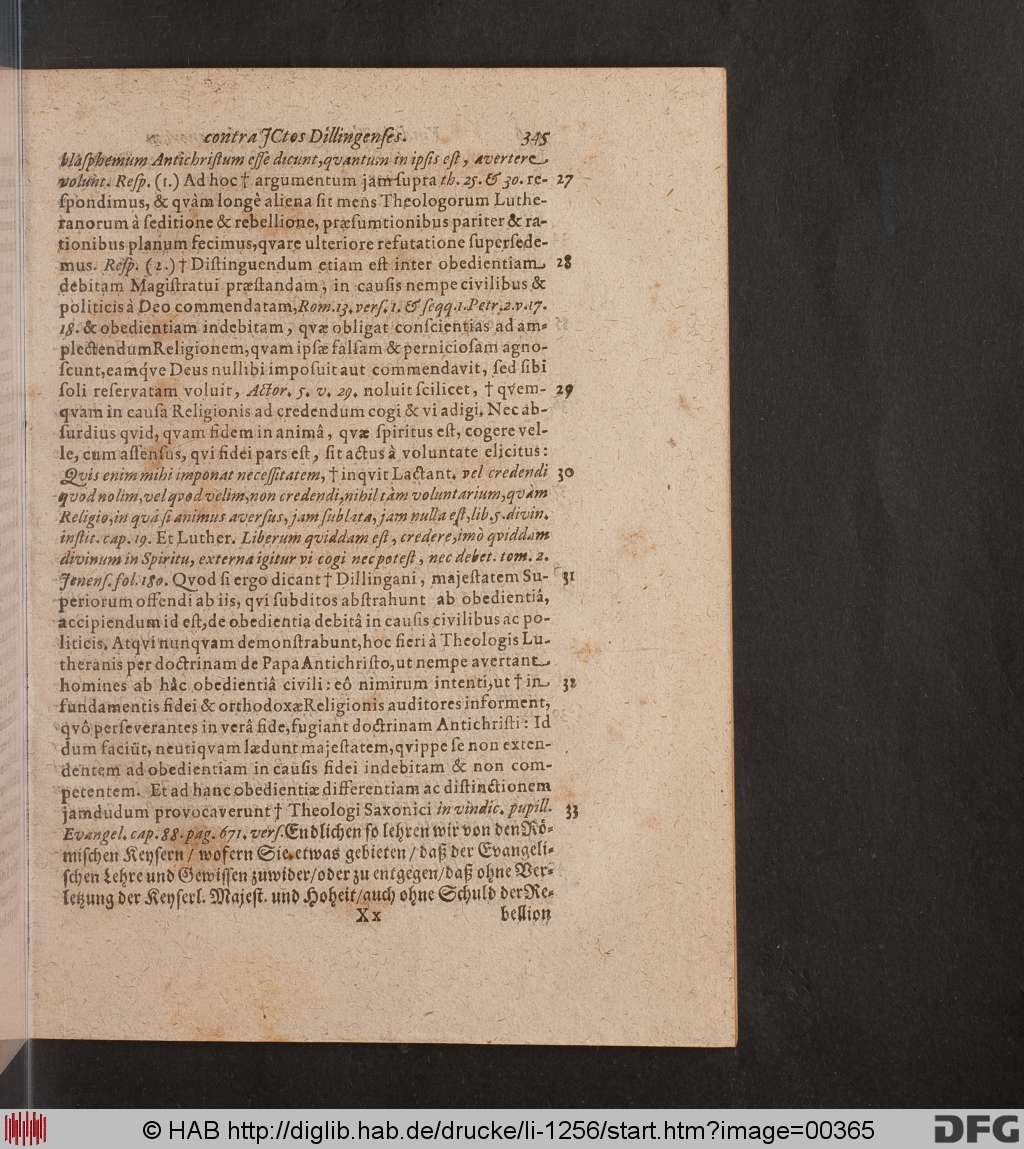 contra JCtos Dillingenſes. 345
blaſphemum Antichriſtum eſſe dicunt, qvantum in ipſis eſt, avertere
volunt. Reſp. (1.) Ad hoc † argumentum jam ſupra th. 25. & 30. re- 27
ſpondimus, & qvàm longè aliena ſit mens Theologorum Luthe-
ranorum à ſeditione & rebellione, præſumtionibus pariter & ra-
tionibus planum fecimus, qvare ulteriore refutatione ſuperſede-
mus. Reſp. (2.) † Diſtinguendum etiam eſt inter obedientiam 28
debitam Magiſtratui præſtandam, in cauſis nempe civilibus &
politicis à Deo commendatam, Rom. 13. verſ. 1. & ſeqq. 1. Petr. 2. v. 17.
18. & obedientiam indebitam, qvæ obligat conſcientias ad am-
plectendum Religionem, qvam ipſæ falſam & pernicioſam agno-
ſcunt, eamq́ve Deus nullibi impoſuit aut commendavit, ſed ſibi
ſoli reſervatam voluit, Actor. 5. v. 29. noluit ſcilicet, † qvem- 29
qvam in cauſa Religionis ad credendum cogi & vi adigi. Nec ab-
ſurdius qvid, qvam fidem in animâ, qvæ ſpiritus eſt, cogere vel-
le, cum aſſenſus, qvi fidei pars eſt, ſit actus à voluntate elicitus:
Qvis enim mihi imponat neceſſitatem, † inqvit Lactant. vel credendi 30
qvod nolim, vel qvod velim, non credendi, nihil tàm voluntarium, qvàm
Religio, in qvâ ſi animus averſus, jam ſublata, jam nulla eſt, lib. 5. divin.
inſtit. cap. 19. Et Luther. Liberum qviddam eſt, credere, imò qviddam
divinum in Spiritu, externa igitur vi cogi nec poteſt, nec debet. tom. 2.
Jenenſ. fol. 180. Qvod ſi ergo dicant † Dillingani, majeſtatem Su- 31
periorum offendi ab iis, qvi ſubditos abſtrahunt ab obedientiâ,
accipiendum id eſt, de obedientia debitâ in cauſis civilibus ac po-
liticis. Atqvi nunqvam demonſtrabunt, hoc fieri à Theologis Lu-
theranis per doctrinam de Papa Antichriſto, ut nempe avertant
homines ab hâc obedientiâ civili: eô nimirum intenti, ut † in 32
fundamentis fidei & orthodoxæ Religionis auditores informent,
qvô perſeverantes in verâ fide, fugiant doctrinam Antichriſti: Id
dum faciūt, neutiqvam lædunt majeſtatem, qvippe ſe non exten-
dentem ad obedientiam in cauſis fidei indebitam & non com-
petentem. Et ad hanc obedientiæ differentiam ac diſtinctionem
jamdudum provocaverunt † Theologi Saxonici in vindic. pupill. 33
Evangel. cap. 88. pag. 671. verſ. Endlichen ſo lehren wir von den Rö-
miſchen Keyſern / wofern Sie etwas gebieten / daß der Evangeli-
ſchen Lehre und Gewiſſen zuwider / oder zu entgegen / daß ohne Ver-
letzung der Keyſerl. Majeſt. und Hoheit / auch ohne Schuld der Re-
Xx bellion
© HAB http://diglib.hab.de/drucke/li-1256/start.htm?image=00365
DFG